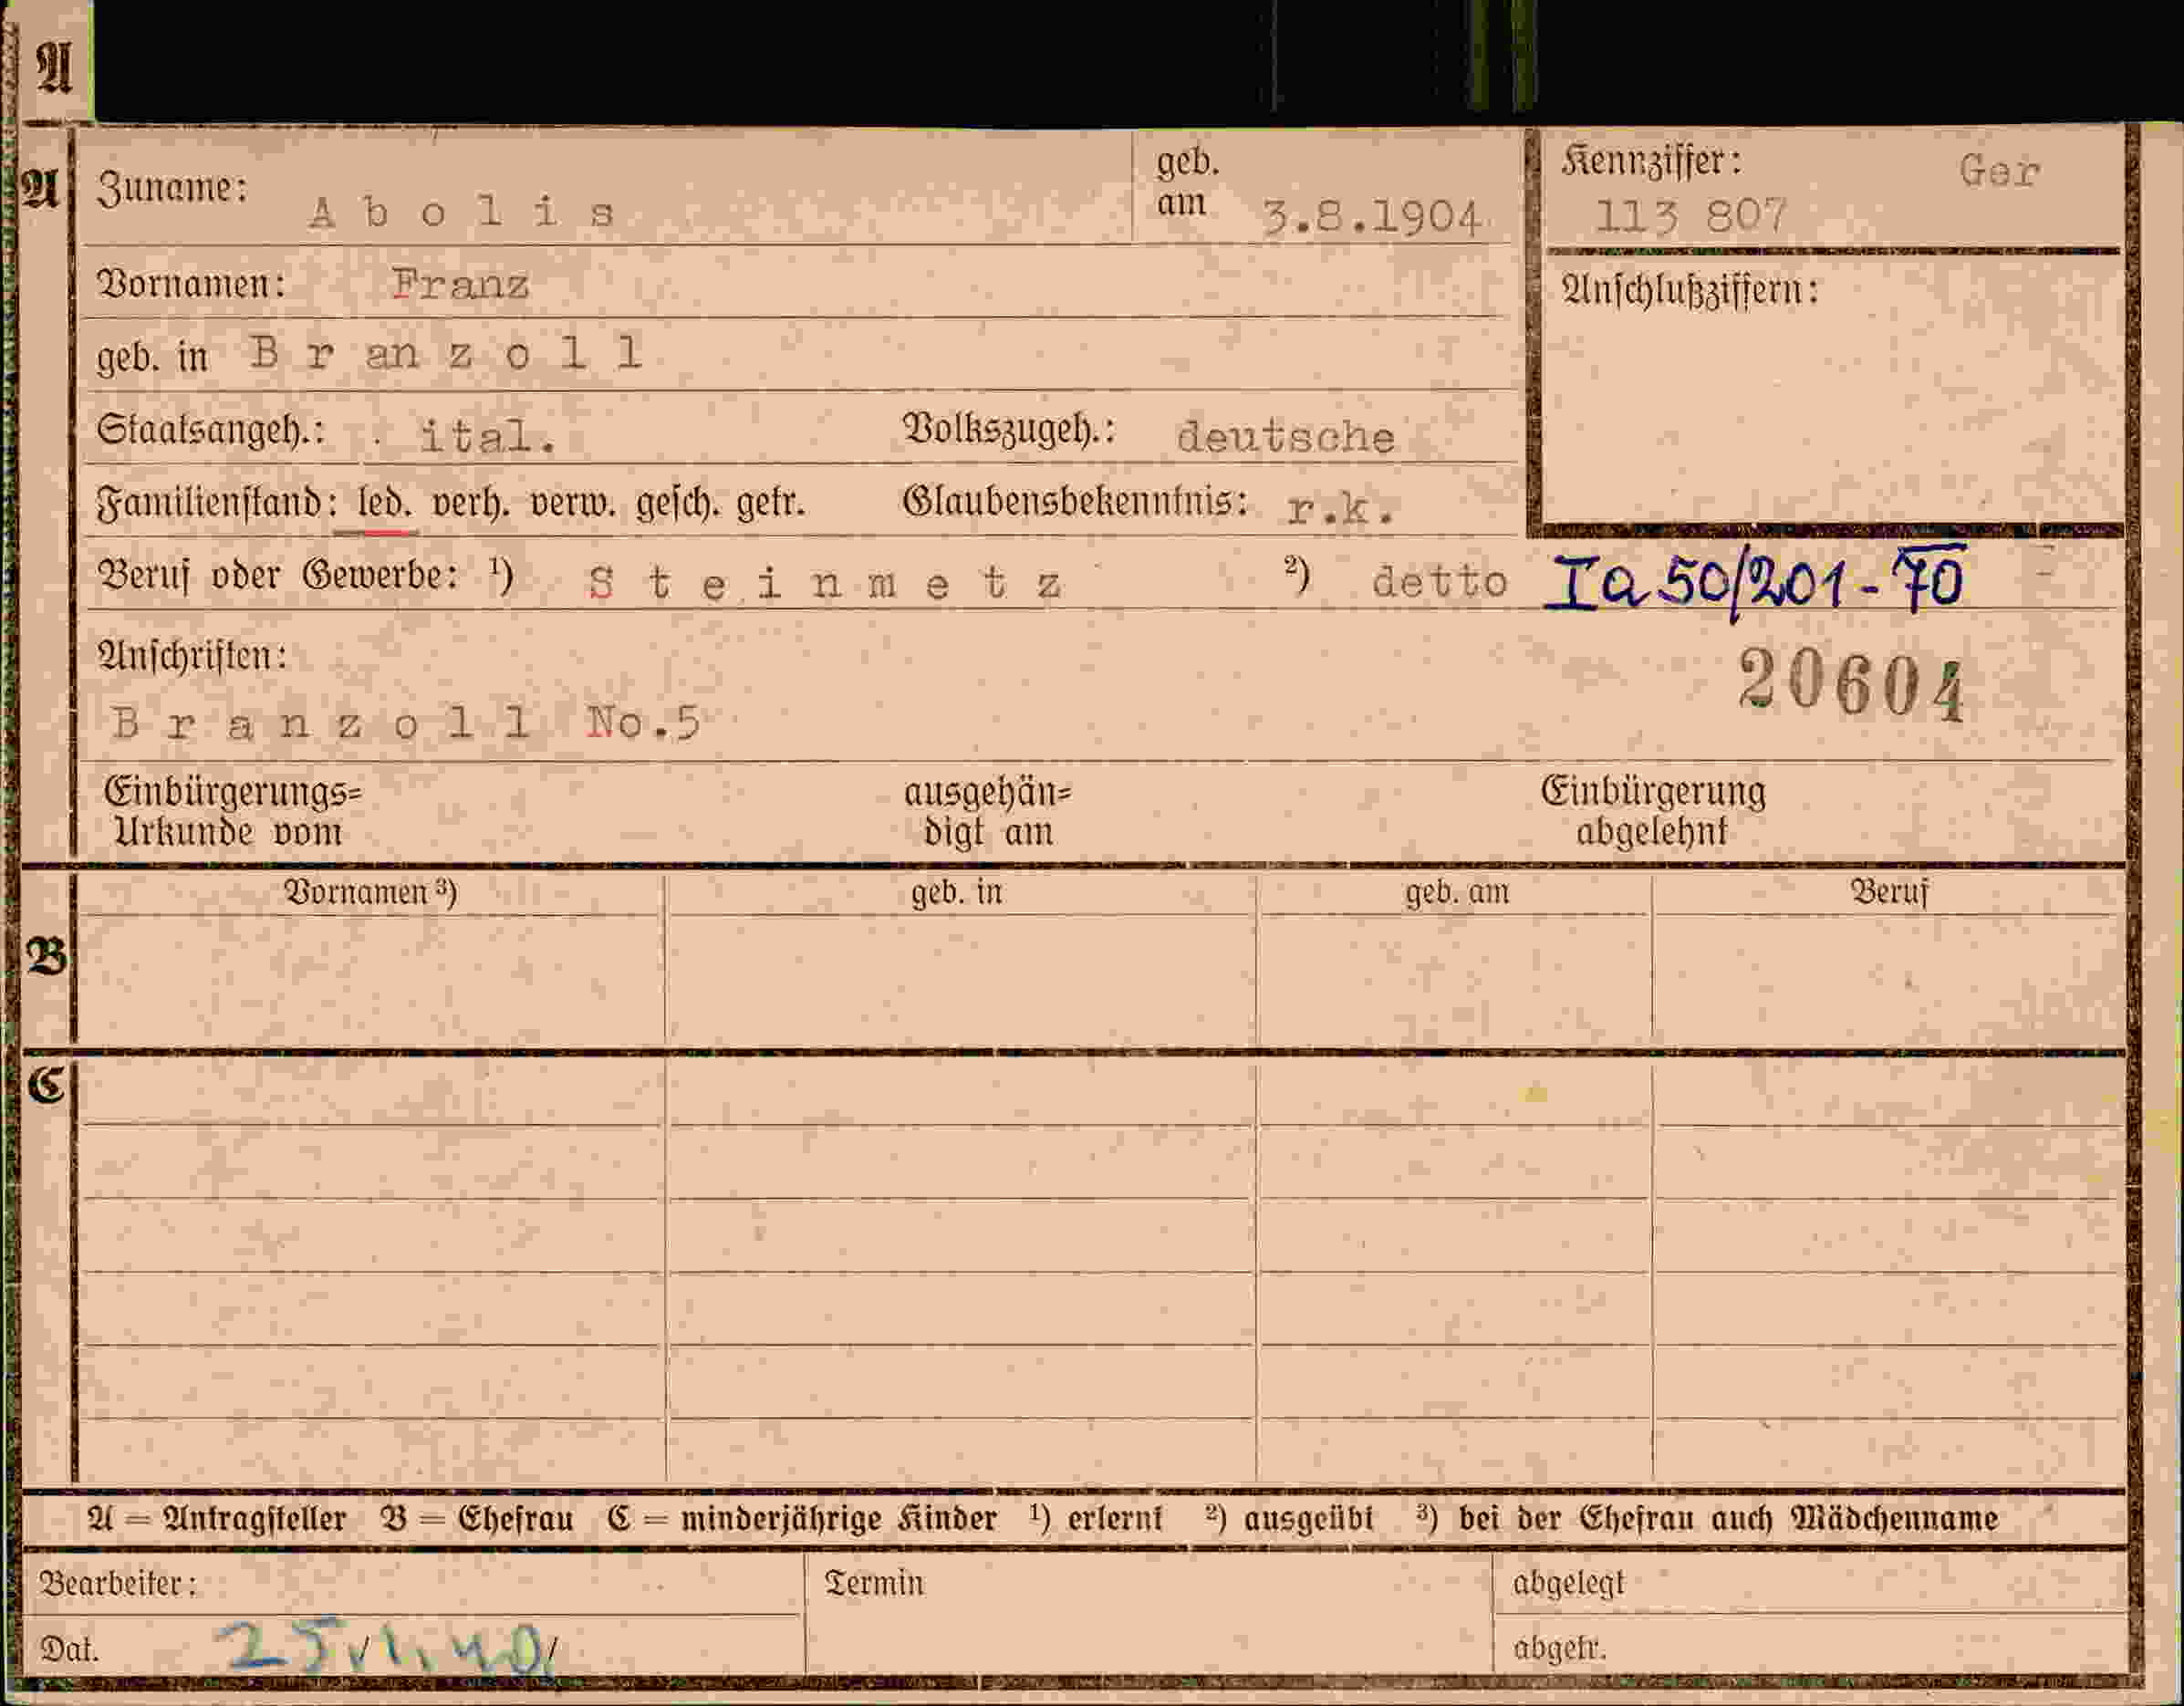 A
A
Zuname: Abolis geb. am 3.8.1904 Kennziffer: Ger
113 807
Vornamen: Franz Anschlußziffern:
geb. in Branzoll
Staatsangeh.: ital. Volkszugeh.: deutsche
Familienstand: led. verh. verw. gesch. getr. Glaubensbekenntnis: r.k.
Beruf oder Gewerbe: ¹) Steinmetz ²) detto Ia 50/201-70
Anschriften: 20604
Branzoll No.5
Einbürgerungs= ausgehän= Einbürgerung
Urkunde vom digt am abgelehnt
Vornamen ³) geb. in geb. am Beruf
B
C
A = Antragsteller B = Ehefrau C = minderjährige Kinder ¹) erlernt ²) ausgeübt ³) bei der Ehefrau auch Mädchenname
Bearbeiter: Termin abgelegt
Dat. abgetr.